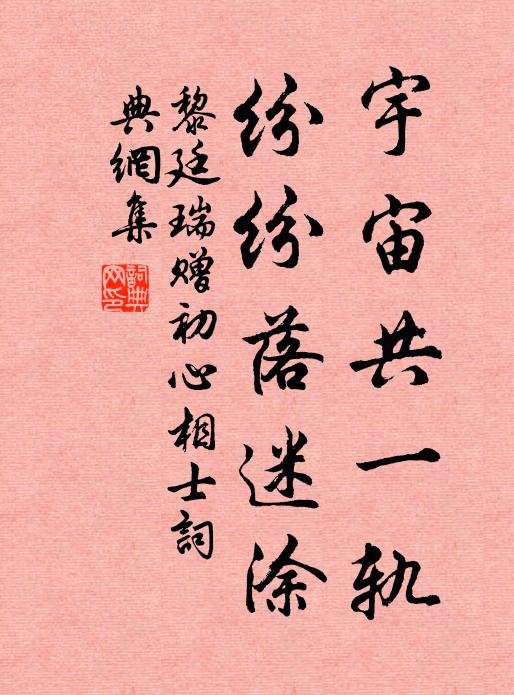 宇宙共一軌
紛紛落迷涂
黎廷瑞贈初心相士詞
典網集
詞典網印